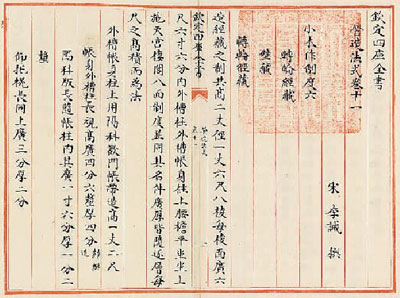 欽定四庫全書
營造法式卷十一
宋 李誡 撰
小木作制度六
轉輪經藏
壁藏
轉輪經藏
造經藏之制共高二丈徑一丈六尺八棱每棱面廣六
尺六寸六分內外槽柱外槽帳身柱上腰檐平坐坐上
施天宮樓閣八面制度並同其名件廣厚皆隨逐層每
尺之高積而為法
外槽帳身柱上用隔科歡門帳帶造高一丈二尺
帳身外槽柱長視高廣四分六釐厚四分
隔科版長隨帳柱內其廣一寸六分厚一分二
釐
仰托榥長同上廣三分厚二分